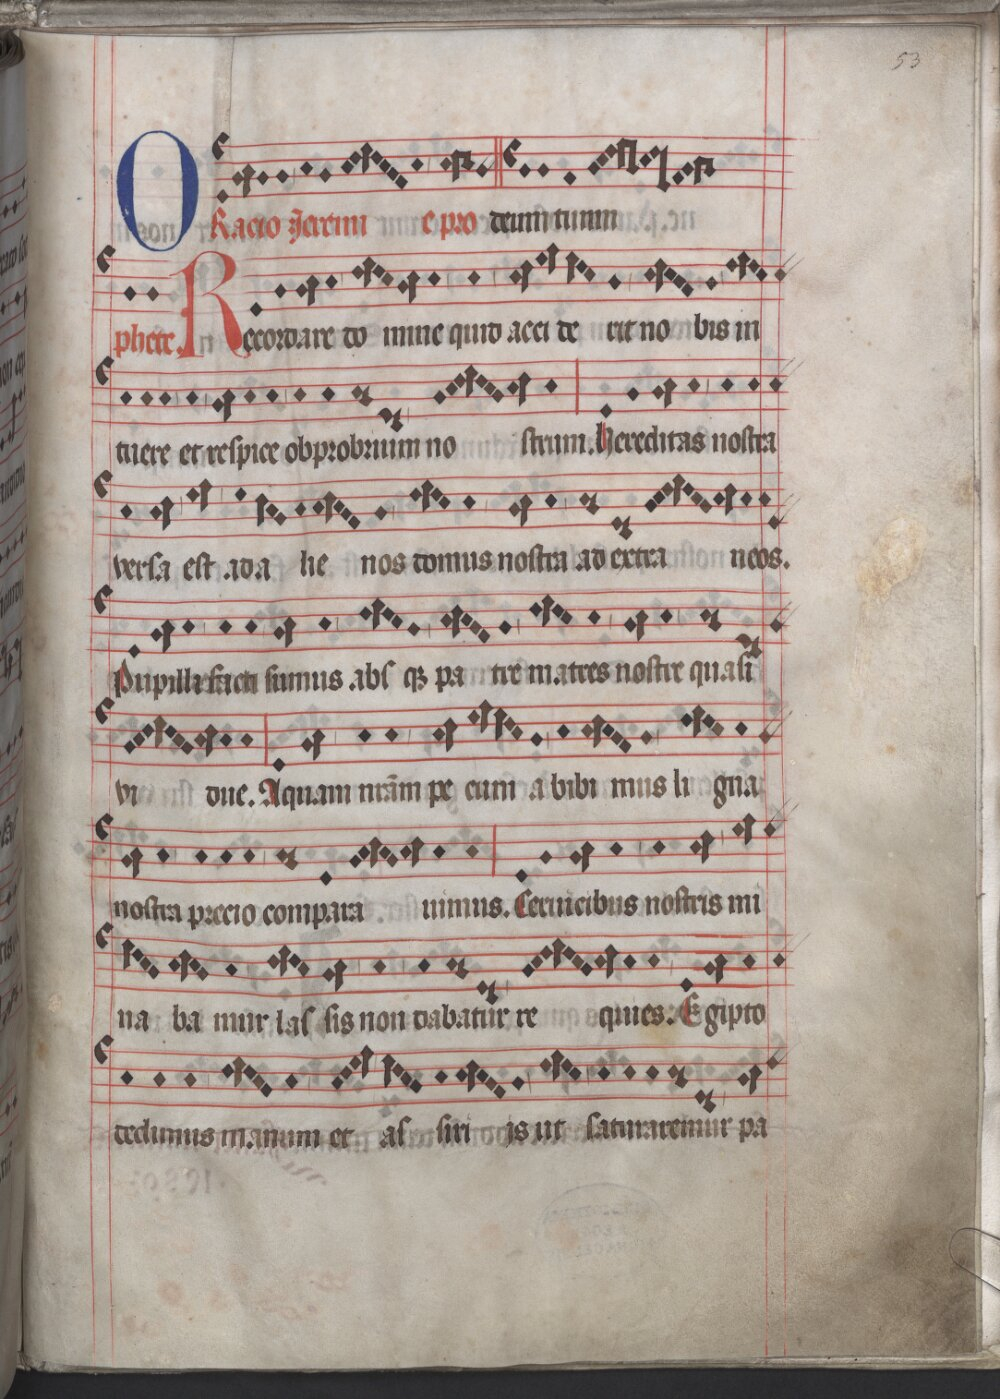 53
ORacio Jeremi e pro deum tuum
phete. Recordare do mine quid acci de rit no bis in
tuere et respice obprobrium no strum. hereditas nostra
versa est ad a lie nos domus nostra ad extra neos.
Pupilli facti sumus abs qꝫ pa tre matres nostre quasi
vi due. Aquam nrām pe cuni a bibi mus li gna
nostra precio compara uimus. Ceruicibus nostris mi
na ba mur las sis non dabatur re quies. Egipto
dedimus manum et as siri js ut saturaremur pa